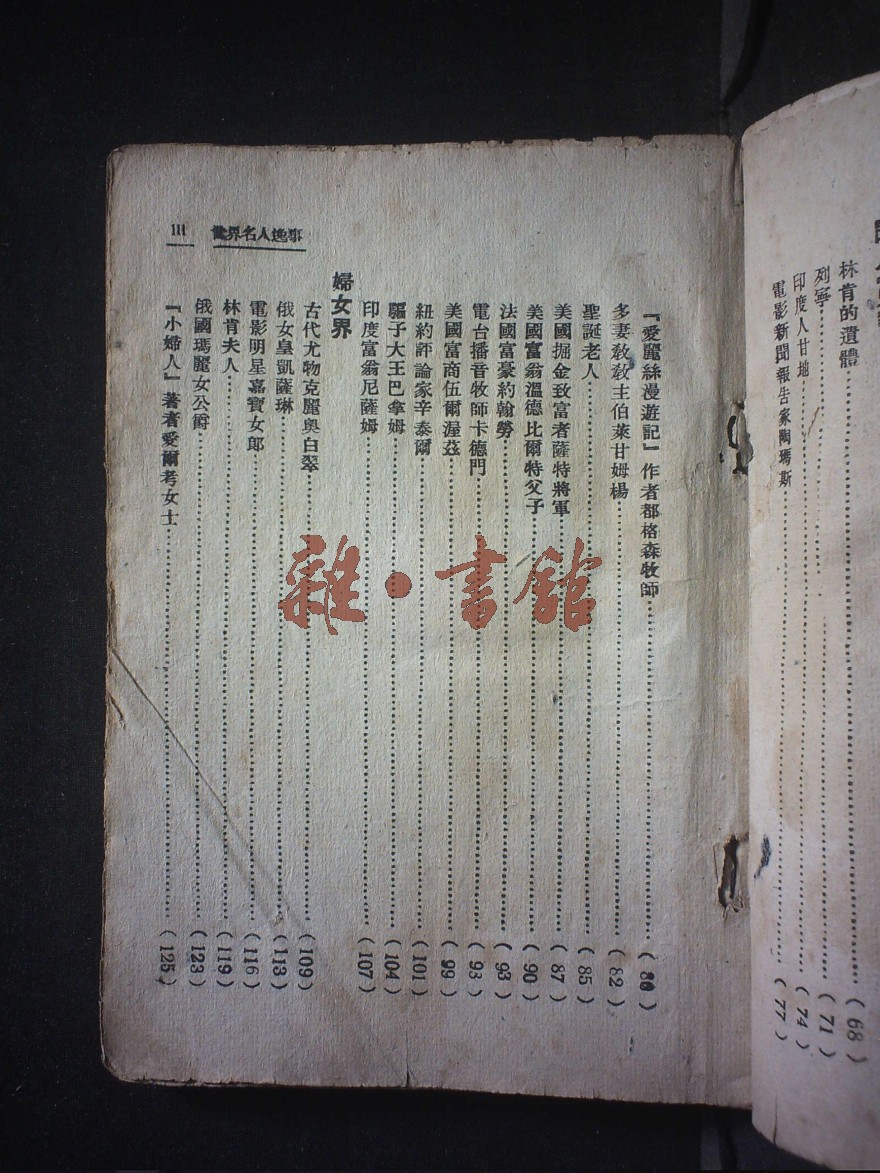 林肯的遺體(68)
列寧(71)
印度人甘地(74)
電影新聞報告家陶瑪斯(77)
III 世界名人逸事
『愛麗絲漫遊記』作者都格森牧師
多妻教教主伯萊甘姆楊(82)
聖誕老人(85)
美國掘金致富者薩特將軍(87)
美國富翁溫德比爾特父子(90)
法國富豪約翰勞(93)
電台播音牧師卡德門(93)
美國富商伍爾渥茲(99)
紐約評論家辛泰爾(101)
騙子大王巴拿姆(104)
印度富翁尼薩姆(107)
婦女界
古代尤物克麗奧白翠(109)
俄女皇凱薩琳(113)
電影明星嘉寶女郎(116)
林肯夫人(119)
俄國瑪麗女公爵(123)
『小婦人』著者愛爾考女士(125)
雜·書館